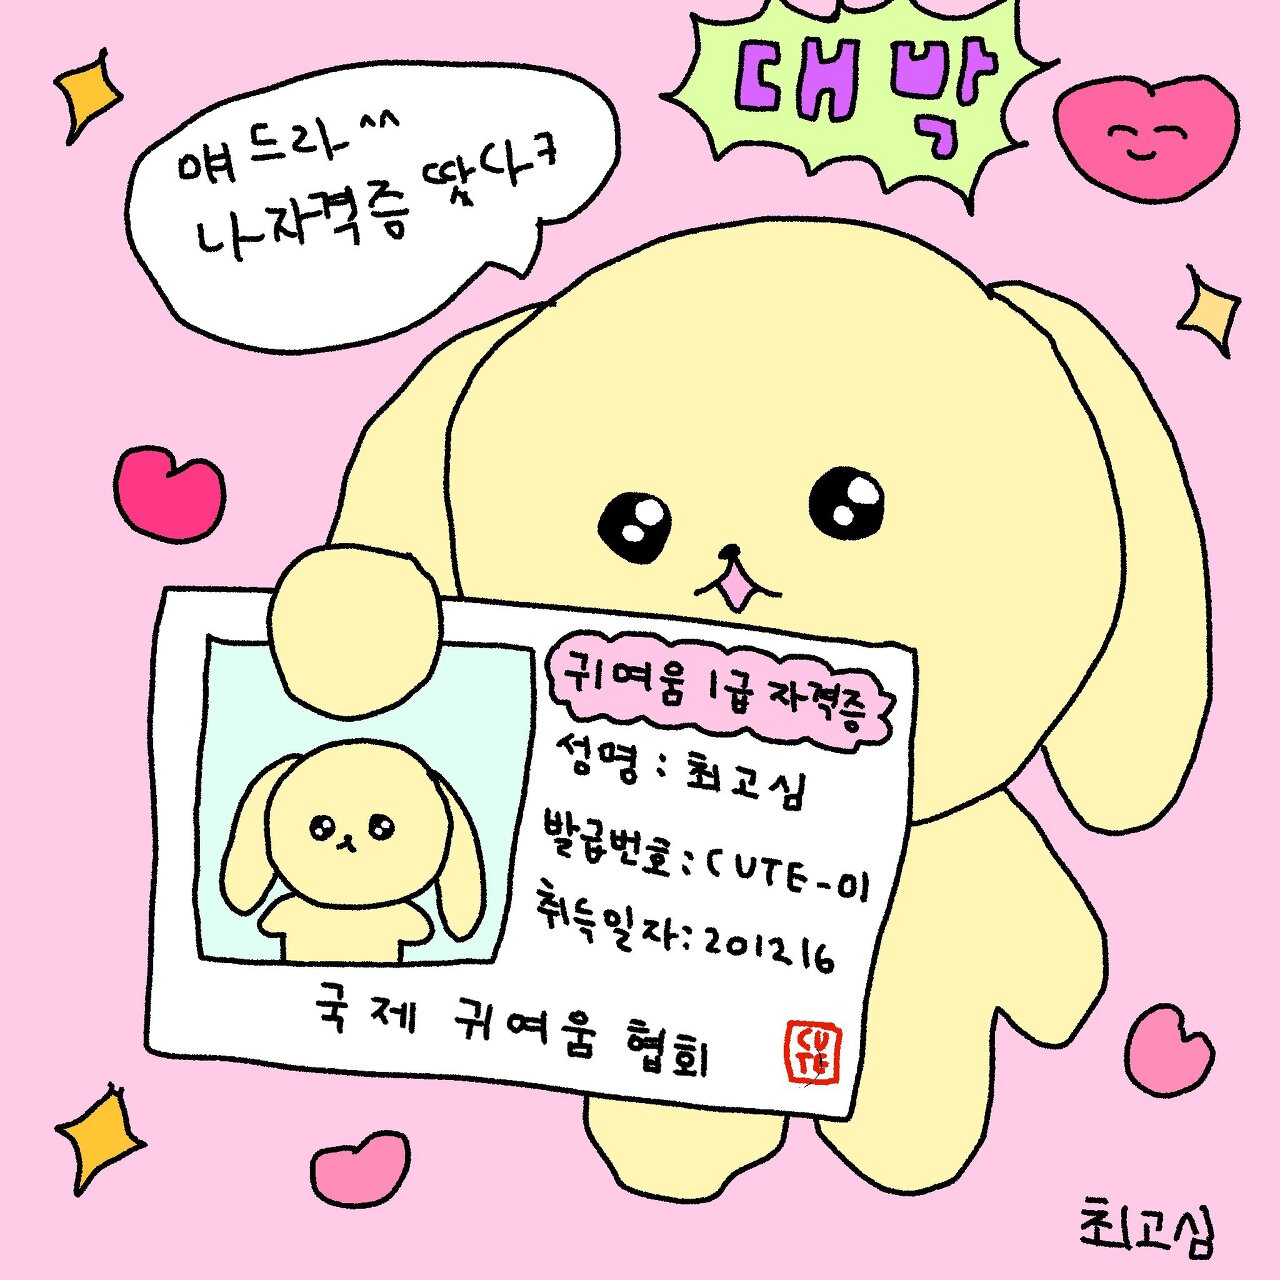 얘드라^^
나 자격증 땄다ㅋ
대박
귀여움 1급 자격증
성명 : 최고심
발급번호 : CUTE-01
취득일자 : 201216
국제 귀여움 협회
CU
TE
최고심